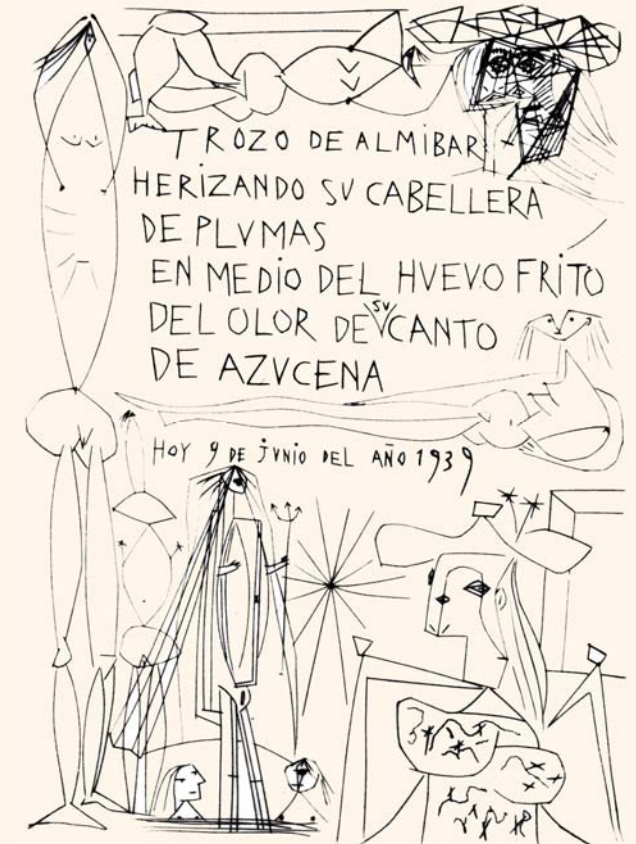 TROZO DE ALMIBAR
HERIZANDO SV CABELLERA
DE PLVMAS
EN MEDIO DEL HVEVO FRITO
DEL OLOR DE SV CANTO
DE AZVCENA
HOY 9 DE jVNiO DEL AÑO 1939